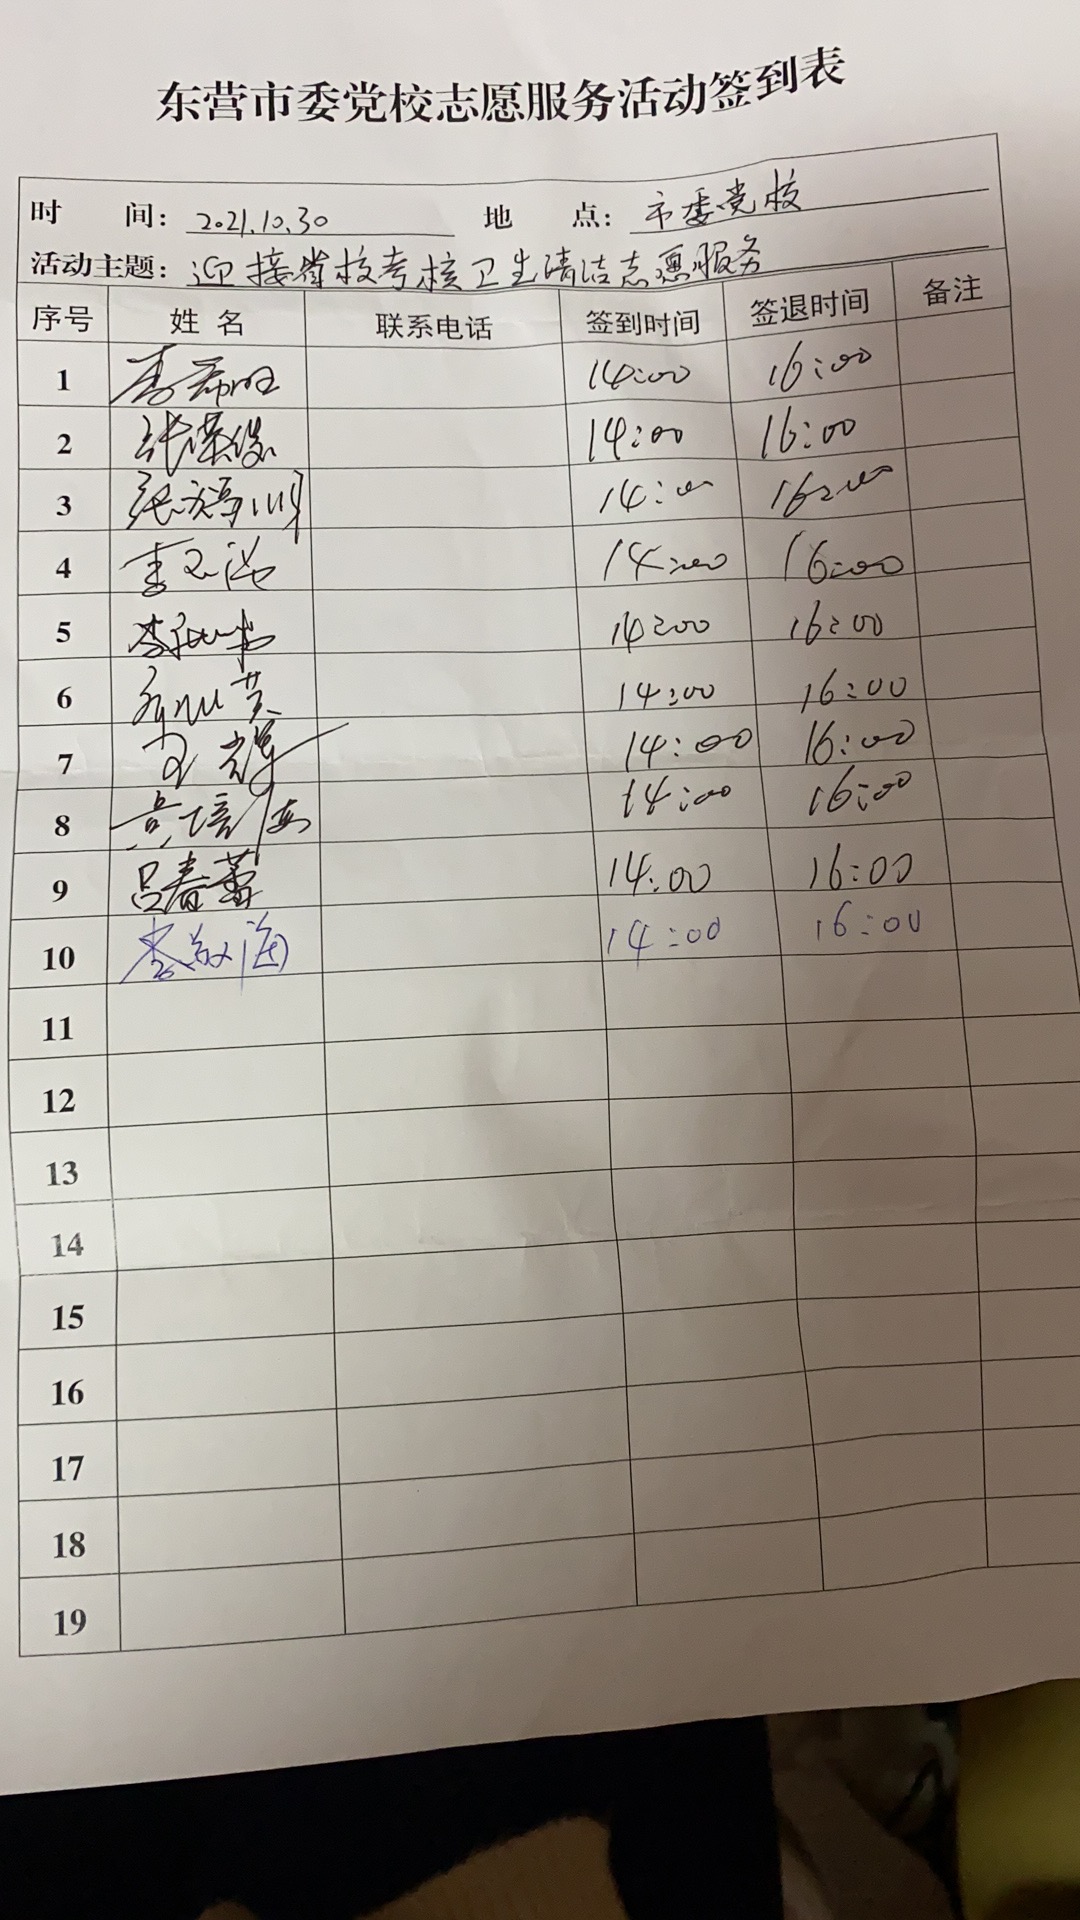 东营市委党校志愿服务活动签到表
时 间: 2021.10.30 地 点: 市委党校
活动主题: 迎接省校考核卫生清洁志愿服务
序号 姓名 联系电话 签到时间 签退时间 备注
1 14:00 16:00
2 14:00 16:00
3 14:00 16:00
4 14:00 16:00
5 14:00 16:00
6 14:00 16:00
7 14:00 16:00
8 黄培 14:00 16:00
9 吕春蕾 14:00 16:00
10 14:00 16:00
11
12
13
14
15
16
17
18
19